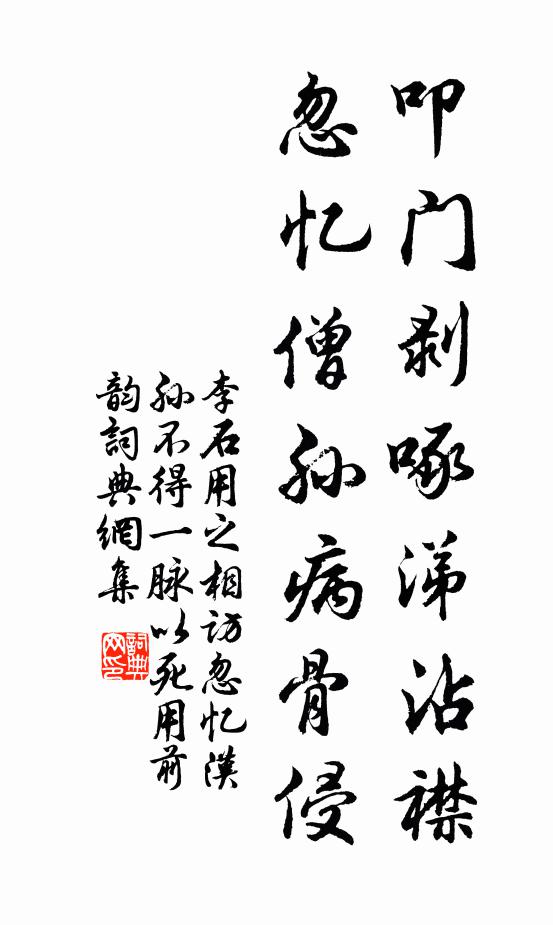 叩门剥啄涕沾襟
忽忆僧孙病骨侵
李石用之相访忽忆漢
孙不得一脉以死用前
韵詞典網集
詞典
网印